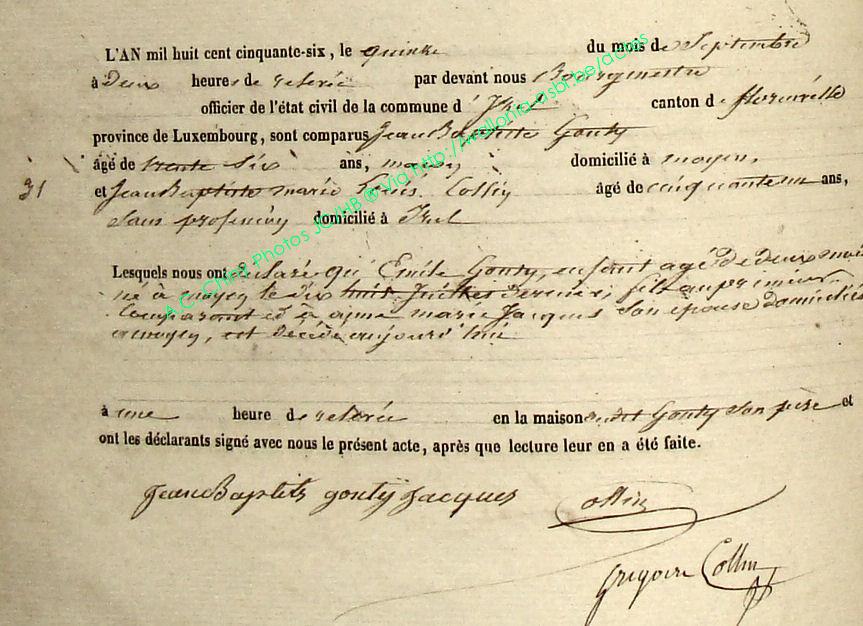 L'AN mil huit cent cinquante-six, le quinze du mois de Septembre
à Deux heures de relevée par devant nous Bourgmestre
officier de l'état civil de la commune d'Izel canton de florenville
province de Luxembourg, sont comparus Jean Baptiste Gouty
âgé de trente six ans, domicilié à moyen,
31 et Jean Baptiste marie Louis Collin âgé de cinquante un ans,
Sans profession domicilié à Izel
Lesquels nous ont déclaré qu' Emile Gouty, enfant agé de deux mois
né à moyen le dix huit Juillet dernier, fils au premier
Comparant et à marie Jacques Son épouse domiciliés
à moyen, est décédé aujourd'hui
à une heure de relevée en la maison dudit Gouty Son père et
ont les déclarants signé avec nous le présent acte, après que lecture leur en a été faite.
Jean Baptiste gouty Jacques Collin
Grégoire Collin
A.C. Chiny Photos JC/HB @ Via http://wallonia.asbl.be/actes